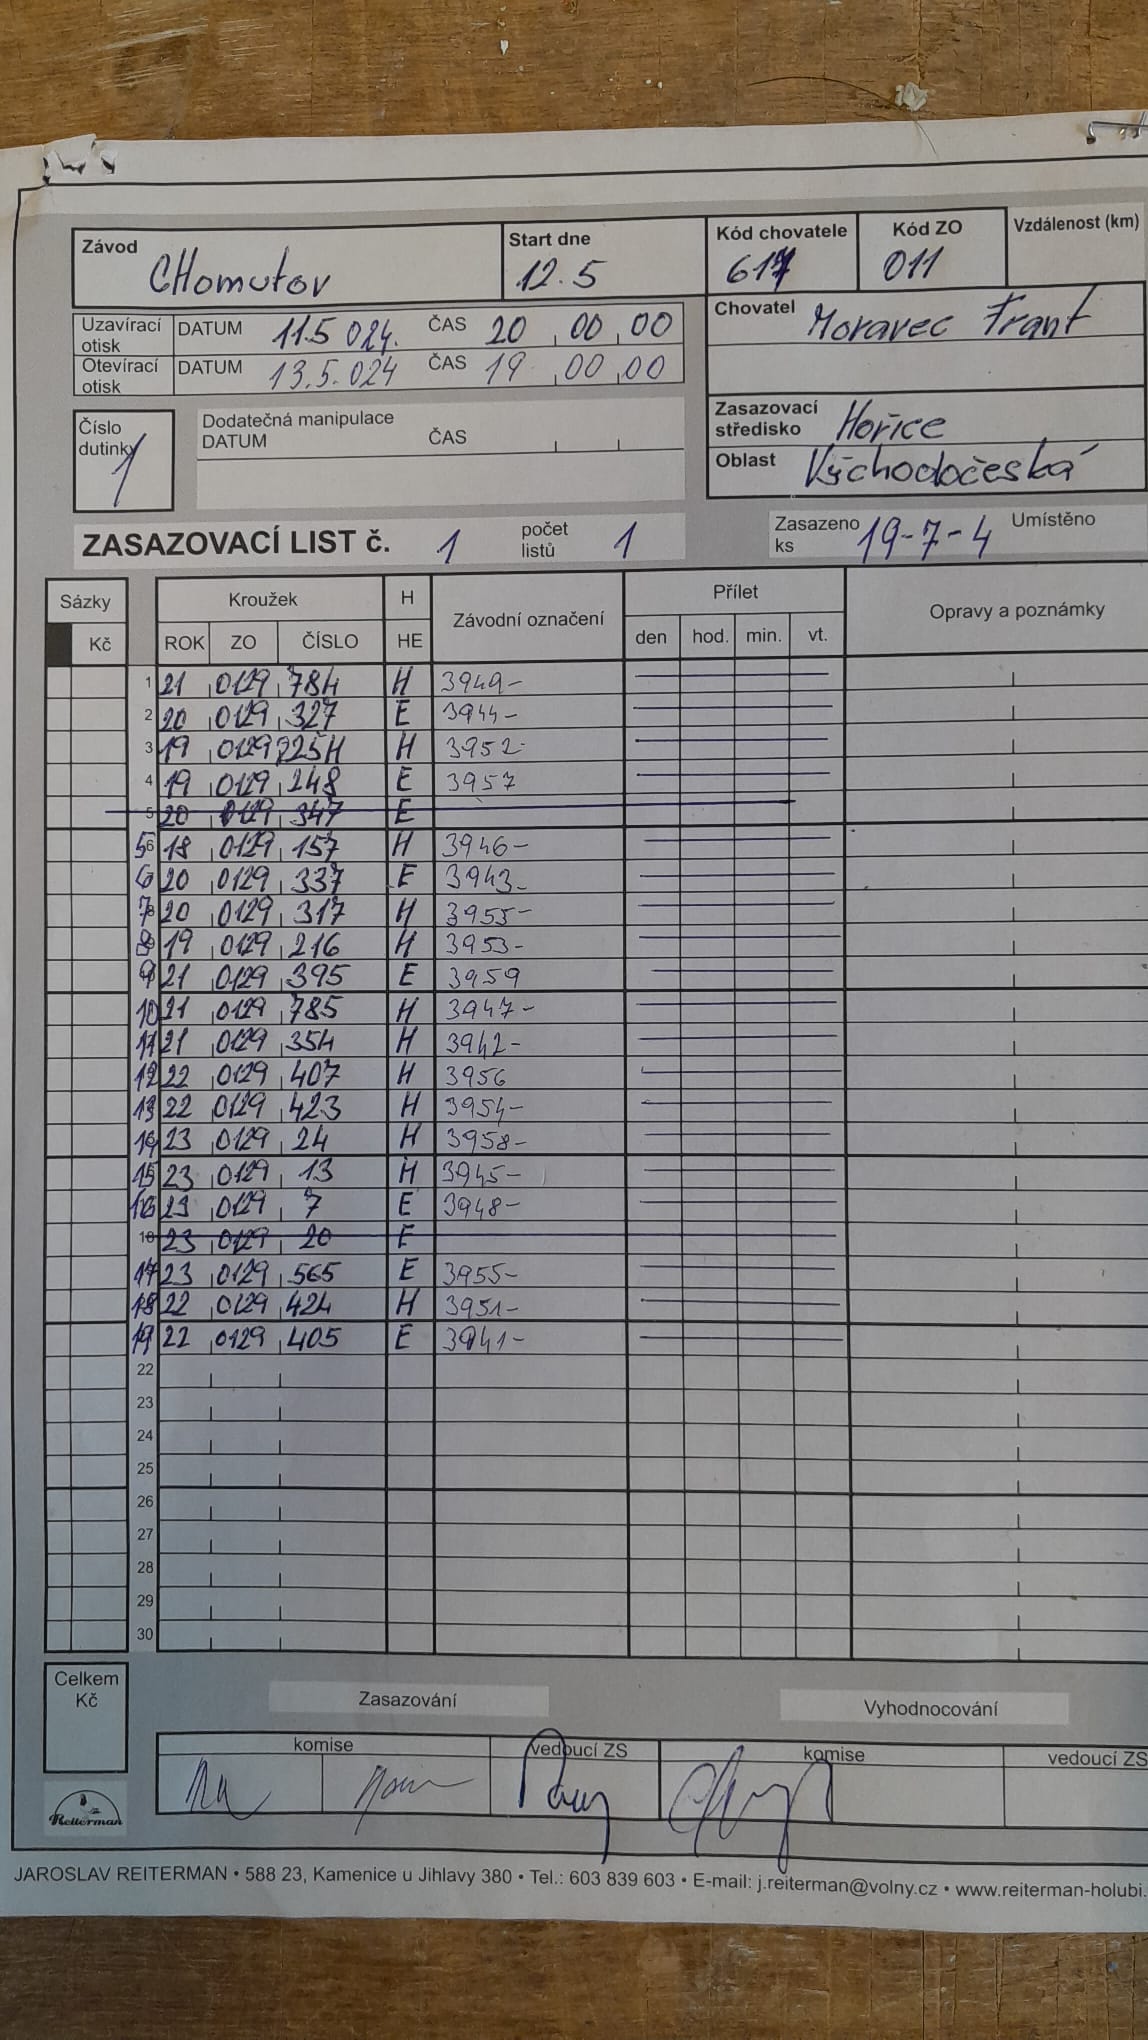 Závod CHomutov
Start dne 12.5
Kód chovatele 617
Kód ZO 011
Vzdálenost (km)
Uzavírací otisk DATUM 11.5 024. ČAS 20 00 00
Otevírací otisk DATUM 13.5.024 ČAS 19 00 00
Chovatel Moravec Frant
Číslo dutinky 1
Dodatečná manipulace
DATUM ČAS
Zasazovací středisko Hořice
Oblast Východočeská
ZASAZOVACÍ LIST č. 1 počet listů 1
Zasazeno ks 19-7-4 Umístěno
Sázky Kroužek H Závodní označení Přílet Opravy a poznámky
Kč ROK ZO ČÍSLO HE den hod. min. vt.
1 21 0129 784 H 3949-
2 20 0129 327 E 3944-
3 19 0129 254 H 3952-
4 19 0129 248 E 3957
5 20 0129 347 E
5 18 0129 157 H 3946-
6 20 0129 337 E 3943-
7 20 0129 317 H 3955-
8 19 0129 216 H 3953-
9 21 0129 395 E 3959
10 21 0129 785 H 3947-
11 21 0129 354 H 3942-
12 22 0129 407 H 3956
13 22 0129 423 H 3954-
14 23 0129 24 H 3958-
15 23 0129 13 H 3945-
16 23 0129 7 E 3948-
18 23 0129 20 E
17 23 0129 565 E 3955-
18 22 0129 424 H 3951-
19 22 0129 405 E 3941-
22
23
24
25
26
27
28
29
30
Celkem Kč
Zasazování Vyhodnocování
komise vedoucí ZS komise vedoucí ZS
Reiterman
JAROSLAV REITERMAN • 588 23, Kamenice u Jihlavy 380 • Tel.: 603 839 603 • E-mail: j.reiterman@volny.cz • www.reiterman-holubi.